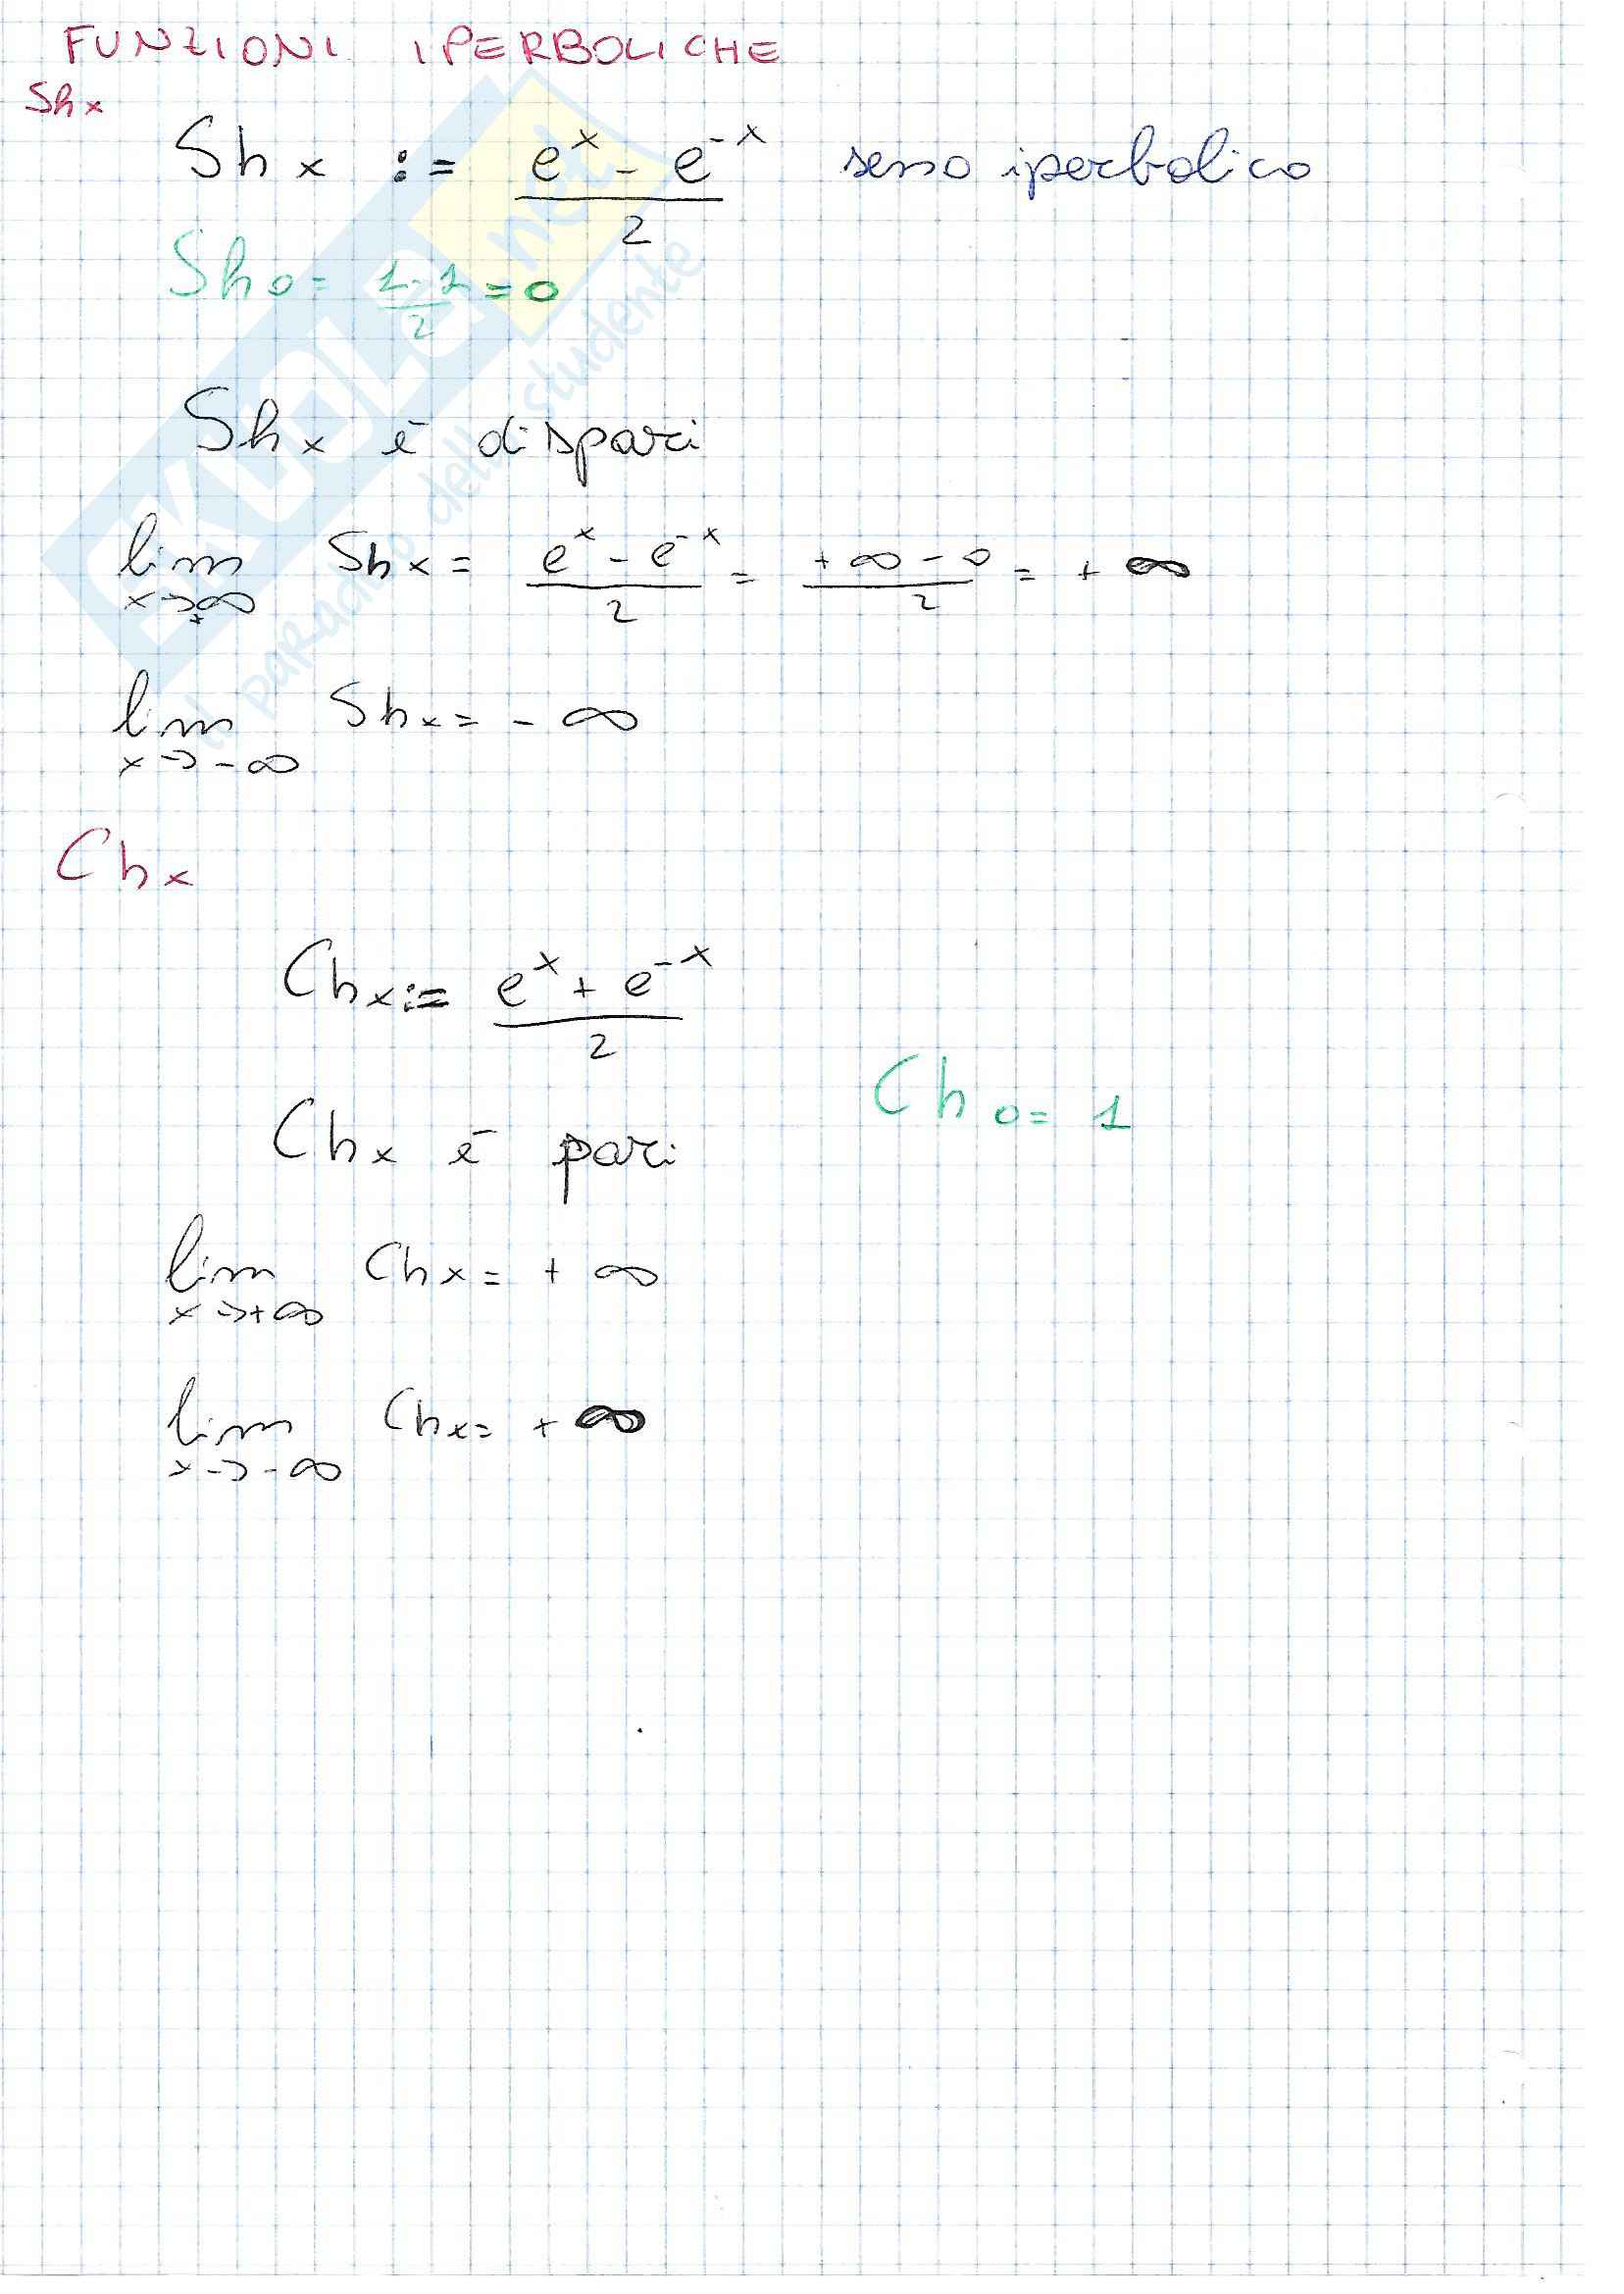 FUNZIONI IPERBOLICHE
Sh x
Sh x := (e^x - e^-x)/2 seno iperbolico
Sh 0 = (1-1)/2 = 0
Sh x è dispari
lim x→+∞ Sh x = (e^x - e^-x)/2 = (+∞ - 0)/2 = +∞
lim x→-∞ Sh x = -∞
Ch x
Ch x := (e^x + e^-x)/2
Ch 0 = 1
Ch x è pari
lim x→+∞ Ch x = +∞
lim x→-∞ Ch x = +∞
SKUOLA.net
il paradiso dello studente